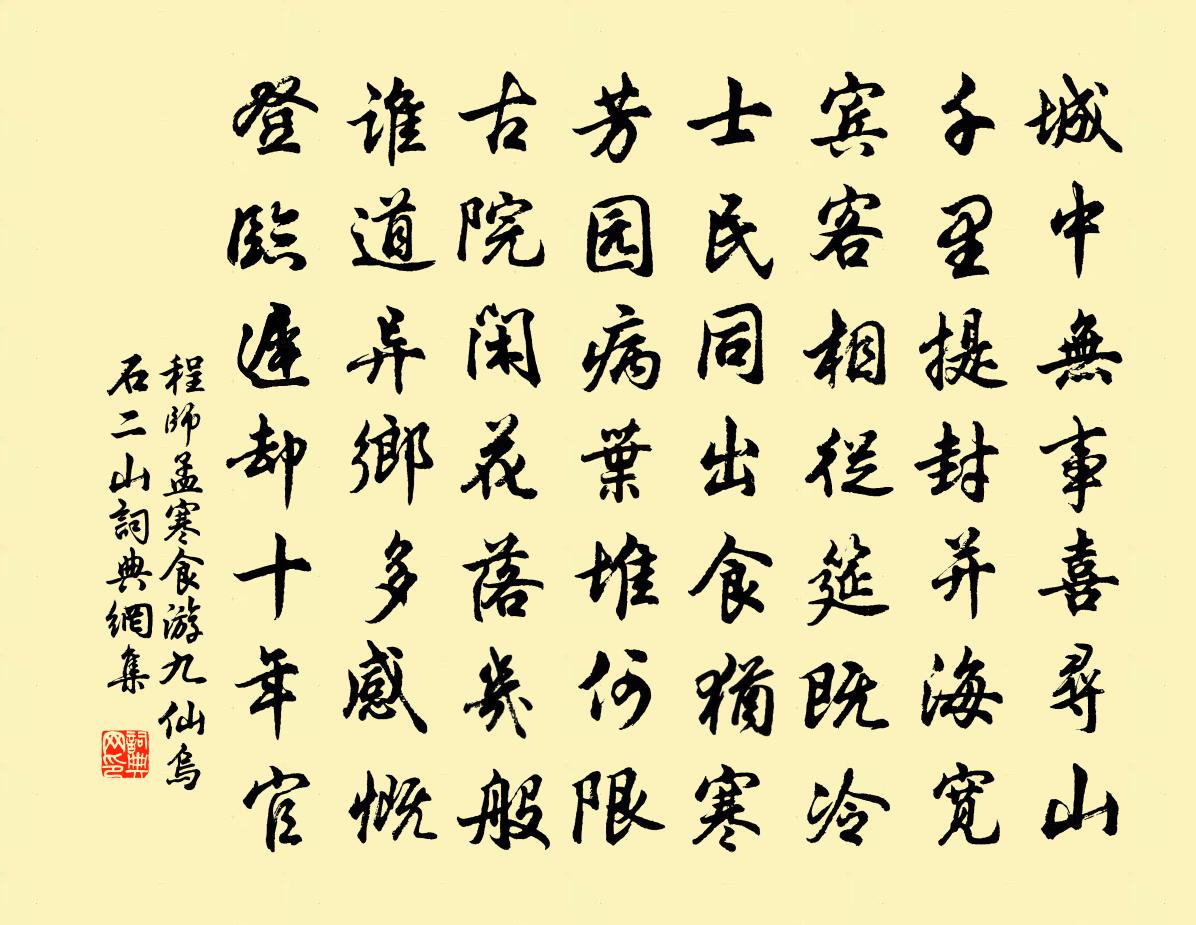 城中無事喜尋山
千里提封并海寬
宾客相從筵既冷
士民同出食猶寒
芳园病葉堆何限
古院闲花落幾般
谁道异鄉多感慨
登臨遲却十年官
程師孟寒食游九仙烏
石二山詞典網集
詞典网印